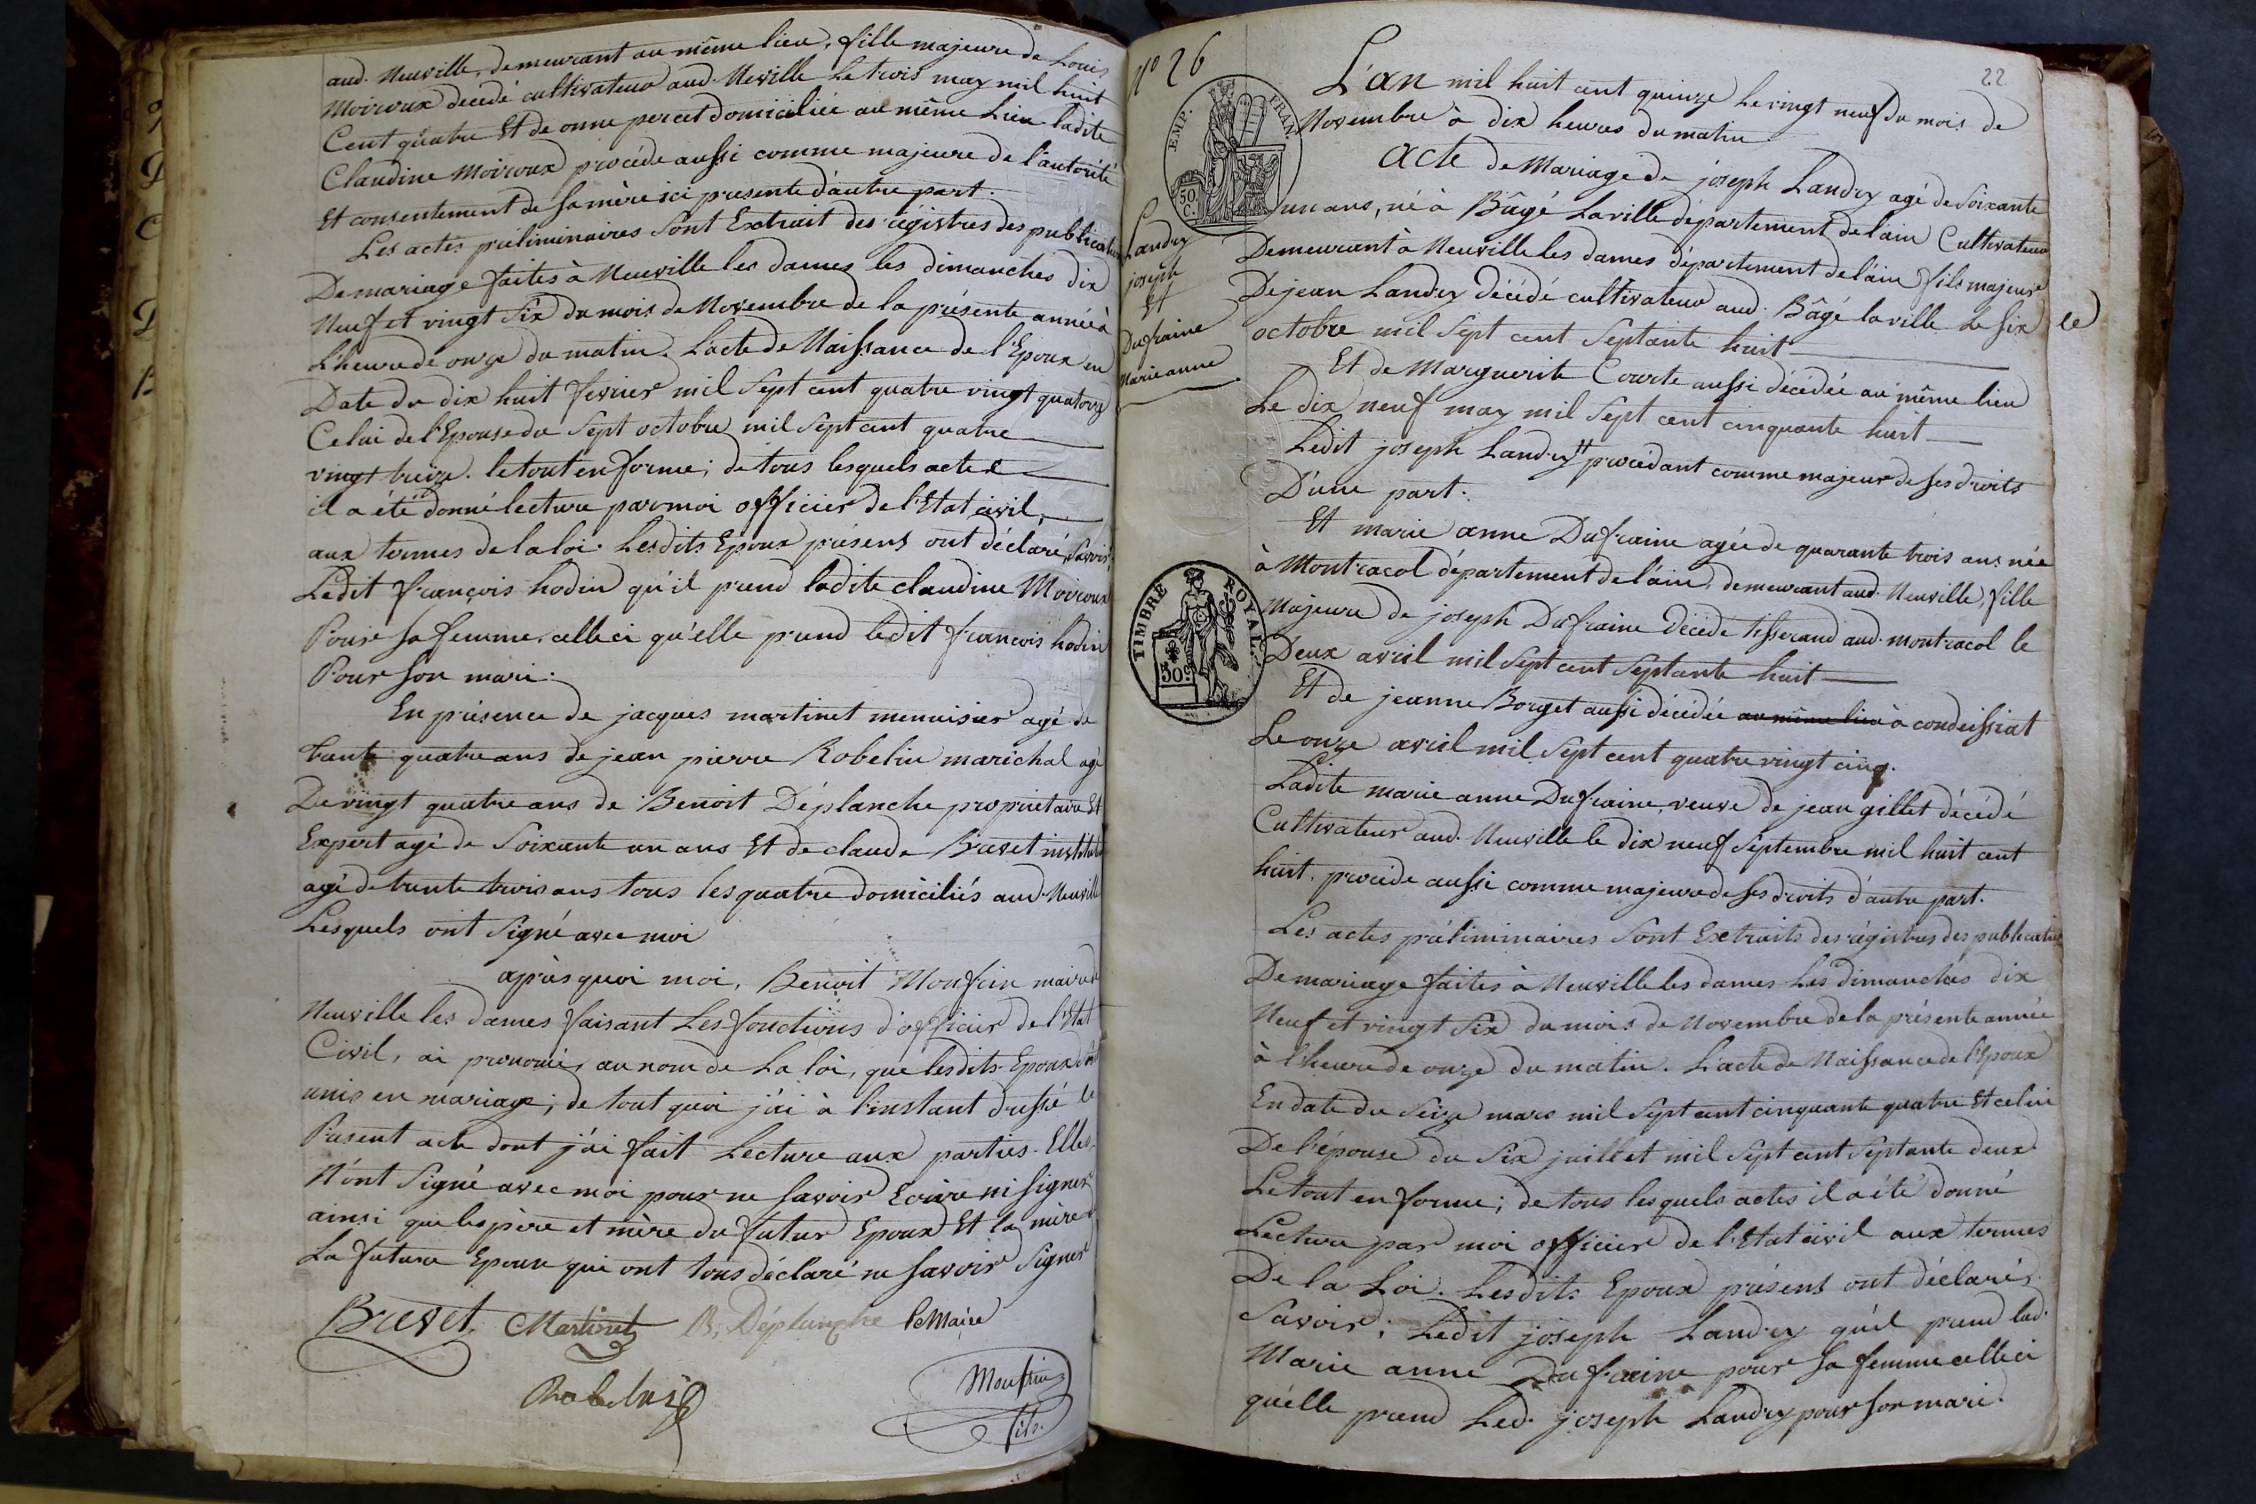 aud. Neuville, demeurant au même lieu, fille majeure de Louis
Moiroux décédé cultivateur aud. Neville Le trois may mil huit
Cent quatre Et de domiciliée au même Lieu Ladite
Claudine Moiroux procède aussi comme majeure de l'autorité
Et consentement de sa mère ici presente d'autre part.
Les actes préliminaires sont Extrait des régistres des publication
De mariage faites à Neuville les dames les dimanches dix
Neuf et vingt six du mois de Novembre de la présente année à
L'heure de onze du matin. L'acte de Naissance de l'Epoux en
Date du dix huit fevrier mil sept cent quatre vingt quatorze
Celui de l'Epouse du sept octobre mil sept cent quatre
vingt treize. le tout en forme; de tous lesquels actes
il a été donné lecture par moi officier de l'Etat civil,
aux termes de la loi. Lesdits Epoux présens ont déclaré, savoir,
Ledit françois hodin qu'il prend ladite claudine Moiroux
Pour sa femme, celle ci qu'elle prend ledit françois hodin
Pour son mari.
En présence de jacques martinet menuisier agé de
trente quatre ans de jean pierre Robelin maréchal agé
De vingt quatre ans de Benoit Déplanche propriétaire Et
Expert agé de soixante un ans Et de claude Brevet
agé de trente trois ans tous les quatre domiciliés aud. Neuville
Lesquels ont signé avec moi
après quoi moi, Benoit Monfrin maire de
Neuville les dames faisant Les fonctions d'officier de l'Etat
Civil, ai prononcé, au nom de La loi, que lesdits Epoux sont
unis en mariage; de tout quoi j'ai à l'instant dressé le
Présent acte dont j'ai fait Lecture aux parties. Elles
N'ont signé avec moi pour ne savoir Ecrire ni signer
ainsi que les père et mère du futur Epoux Et la mère de
La future Epoux qui ont tous déclaré ne savoir signer
Brevet Martinet B. Déplanche le Maire
Robelin
Monfrin
fils.
N° 26
22
EMP. FRAN.
50 C.
L'an mil huit cent quinze Le vingt neuf du mois de
Novembre à dix heures du matin
Acte de Mariage de joseph Landry agé de soixante
un ans, né à Bâgé Laville département de l'ain Cultivateur
Landry
joseph
Et
Dufraine
Marie anne
Demeurant à Neuville les dames département de l'ain fils majeur
De jean Landry décédé cultivateur aud. Bâgé la ville Le six le
octobre mil sept cent septante huit
Et de Marguerite Courte aussi décédée au même lieu
Le dix neuf may mil sept cent cinquante huit
Ledit joseph Landry procédant comme majeur de ses droits
D'une part.
Et marie anne Dufraine agée de quarante trois ans née
à Montracol département de l'ain, demeurant aud. Neuville, fille
TIMBRE ROYAL.
50 c
Majeure de joseph Dufraine décédé tisserand aud. montracol le
Deux avril mil sept cent septante huit
Et de jeanne Borget aussi décédée au même lieu à condeissiat
Le onze avril mil sept cent quatre vingt cinq.
Ladite marie anne Dufraine, veuve de jean gillet décédé
Cultivateur aud. Neuville le dix neuf septembre mil huit cent
huit, procède aussi comme majeure de ses droits d'autre part.
Les actes préliminaires sont Extraits des régistres des publication
De mariage faites à Neuville les dames Les dimanches dix
Neuf et vingt six du mois de Novembre de la présente année
à l'heure de onze du matin. L'acte de Naissance de l'Epoux
En date du seize mars mil sept cent cinquante quatre Et celui
De l'épouse du six juillet mil sept cent septante deux
Le tout en forme; de tous lesquels actes il a été donné
Lecture par moi officier de l'Etat civil aux termes
De la Loi. Lesdits Epoux présens ont déclaré,
Savoir; Ledit joseph Landry qu'il prend lad.
Marie anne Dufraine pour sa femme celle ci
qu'elle prend Led. joseph Landry pour son mari.